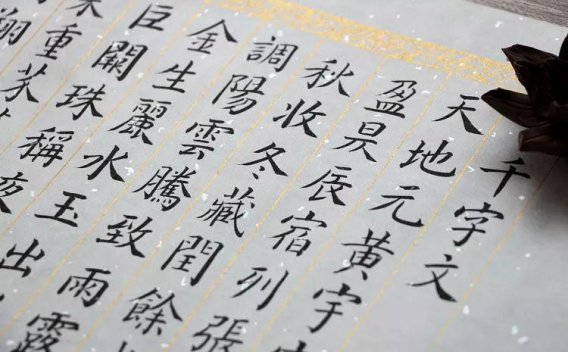 千字文
天地元黄宇
盈昃辰宿列張
秋收冬藏閏餘
調陽雲騰致雨露
金生麗水玉出
巨闕珠稱夜
重芥
翔